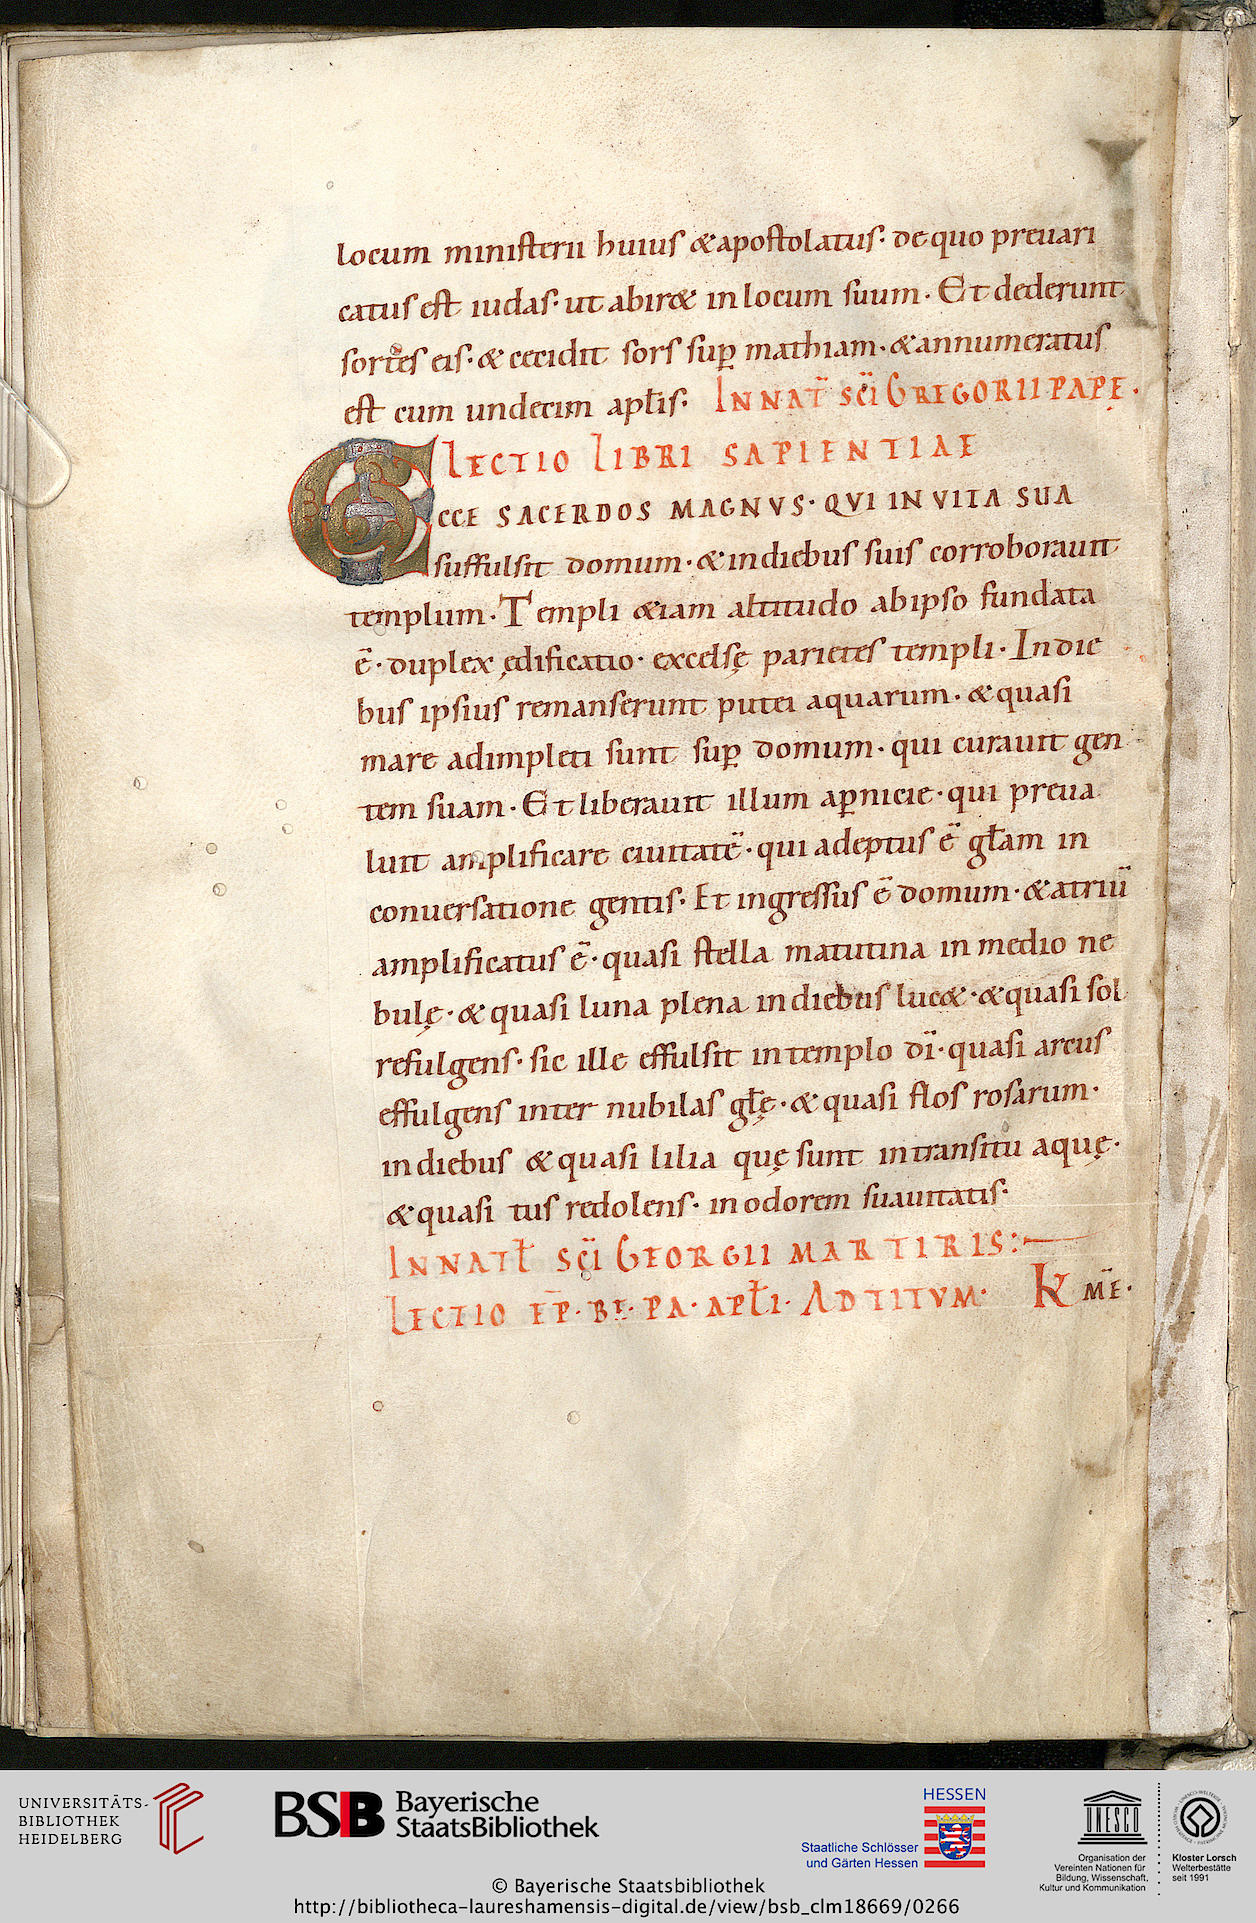 locum ministerii huius & apostolatus· de quo preuari
catus est iudas· ut abir& in locum suum· Et dederunt
sortes eis· & cecidit sors sup̱ mathiam· & annumeratus
est cum undecim apłis· IN NAT̄ SC̄I GREGORII PAPĘ·
LECTIO LIBRI SAPIENTIAE
ECCE SACERDOS MAGNVS· QVI IN VITA SUA
suffulsit domum· & in diebus suis corroborauit
templum· Templi &iam altitudo ab ipso fundata
ē· duplex ędificatio· excelsę parietes templi· In die
bus ipsius remanserunt putei aquarum· & quasi
mare adimpleti sunt sup̱ domum· qui curauit gen
tem suam· Et liberauit illum a p̱nicie· qui preua
luit amplificare ciuitatē· qui adeptus ē głam in
conuersatione gentis· Et ingressus ē domum· & atriū
amplificatus ē· quasi stella matutina in medio ne
bulę· & quasi luna plena in diebus luc&· & quasi sol
refulgens· sic ille effulsit in templo dī· quasi arcus
effulgens inter nubilas głę· & quasi flos rosarum·
in diebus & quasi lilia quę sunt in transitu aquę·
& quasi tus redolens· in odorem suauitatis·
IN NATŁ SC̄I GEORGII MARTIRIS:
LECTIO EP̄· BE· PA· APŁI· AD TITVM· K M̄E·
UNIVERSITÄTS-
BIBLIOTHEK
HEIDELBERG
BSB Bayerische
StaatsBibliothek
HESSEN
Staatliche Schlösser
und Gärten Hessen
UNESCO
Organisation der
Vereinten Nationen für
Bildung, Wissenschaft,
Kultur und Kommunikation
Kloster Lorsch
Welterbestätte
seit 1991
© Bayerische Staatsbibliothek
http://bibliotheca-laureshamensis-digital.de/view/bsb_clm18669/0266